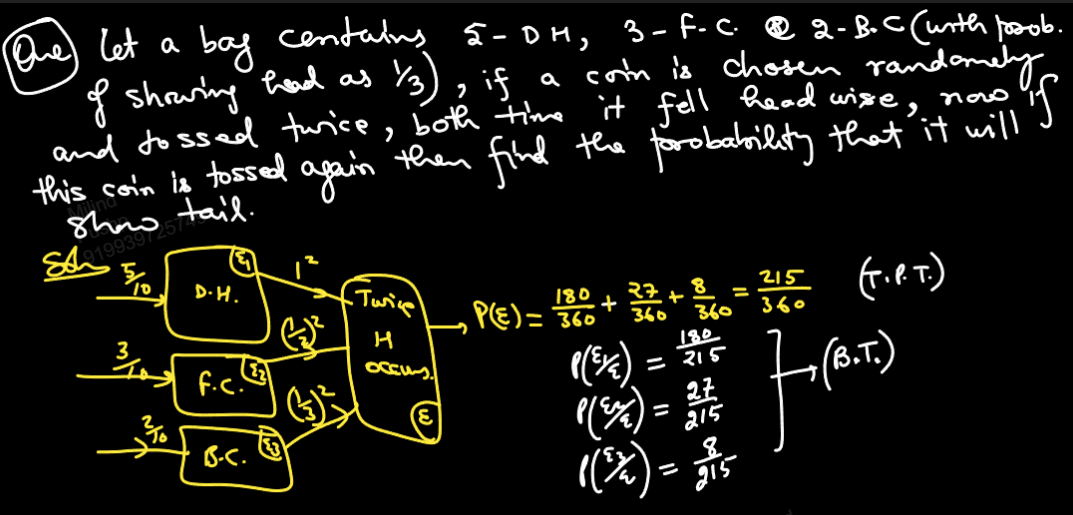 Que) let a bag contains 5-DH, 3-F.C. & 2-B.C (with prob.
of showing head as 1/3), if a coin is chosen randomely
and tossed twice, both time it fell head wise, now if
this coin is tossed again then find the probability that it will
show tail.
Soln
5/10 D.H. E1 1²
3/10 F.C. E2 (1/2)²
2/10 B.C. E3 (1/3)²
Twice
H
occurs.
E
P(E) = 180/360 + 27/360 + 8/360 = 215/360 (T.P.T.)
P(E1/E) = 180/215
P(E2/E) = 27/215
P(E3/E) = 8/215
→ (B.T.)
Milind